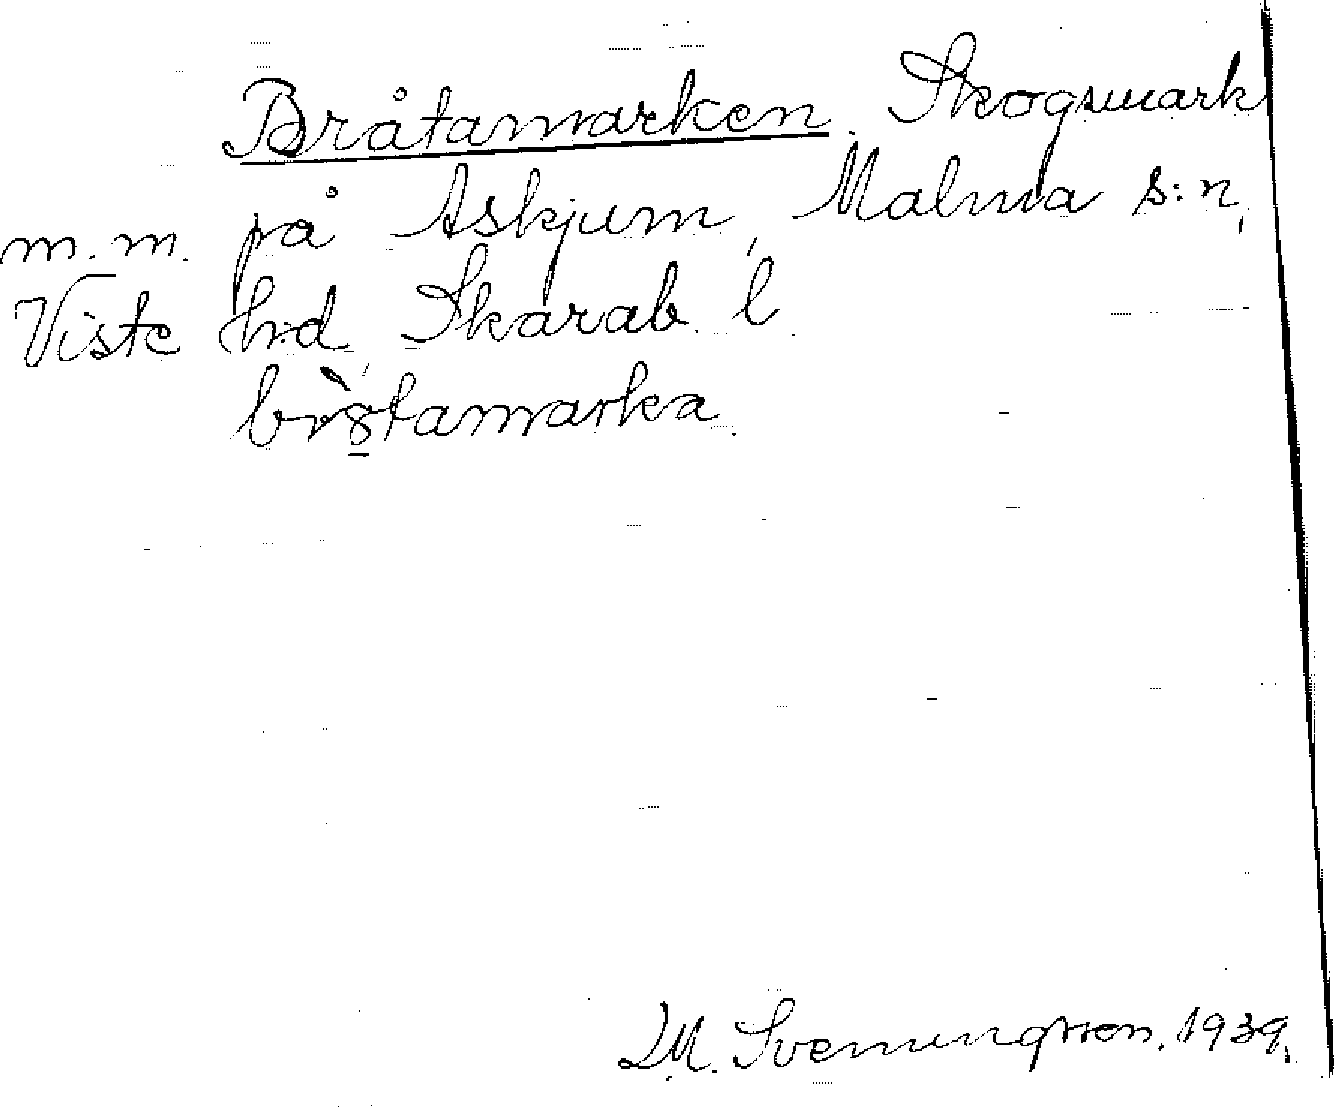 Bråtamarken. Skogsmark
m.m. på Askjum, Malma s:n,
Viste hd, Skarab. l.
br8̠̀tamarka.
M. Svenungsson. 1939.